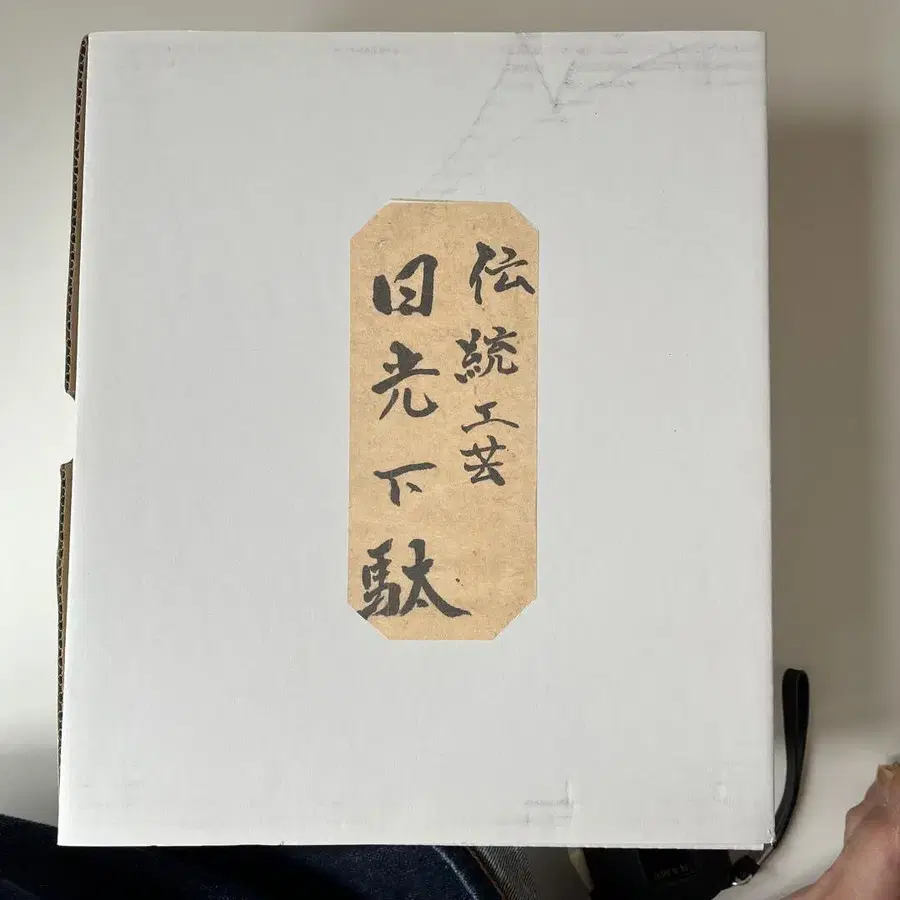 伝統工芸
日光下駄